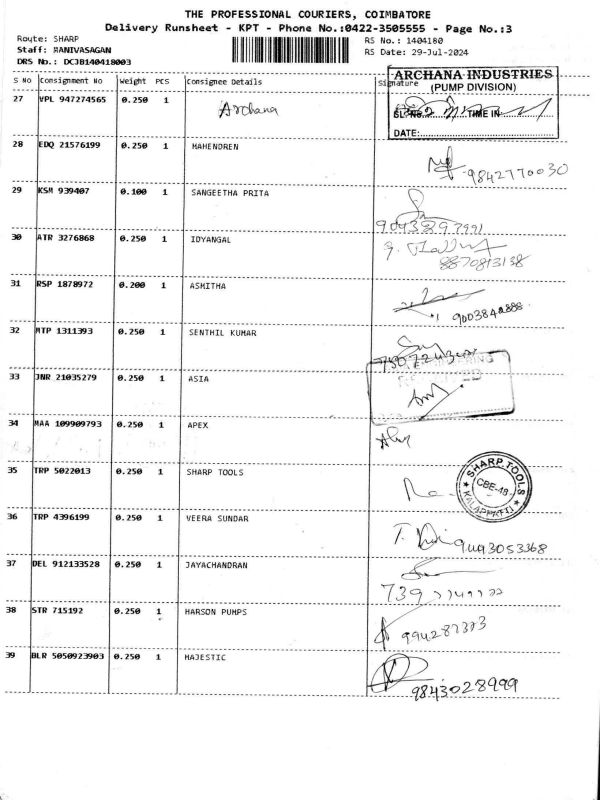 THE PROFESSIONAL COURIERS, COIMBATORE
Delivery Runsheet - KPT - Phone No.:0422-3505555 - Page No.:3
Route: SHARP
Staff: MANIVASAGAN
DRS No.: DCJB140418003
RS No.: 1404180
RS Date: 29-Jul-2024
S No Consignment No Weight PCS Consignee Details Signature
ARCHANA INDUSTRIES
(PUMP DIVISION)
SL. No. TIME IN
DATE:
27 VPL 947274565 0.250 1 Archana
28 EDQ 21576199 0.250 1 MAHENDREN
9842770030
29 KSM 939407 0.100 1 SANGEETHA PRITA
30 ATR 3276868 0.250 1 IDYANGAL
8870813138
31 RSP 1878972 0.200 1 ASHITHA
32 MTP 1311393 0.250 1 SENTHIL KUMAR
33 JNR 21035279 0.250 1 ASIA
34 MAA 109909793 0.250 1 APEX
35 TRP 5022013 0.250 1 SHARP TOOLS
SHARP TOOLS
CBE-48
KALAPPATTI
36 TRP 4396199 0.250 1 VEERA SUNDAR
9493053368
37 DEL 912133528 0.250 1 JAYACHANDRAN
38 STR 715192 0.250 1 HARSON PUMPS
39 BLR 5050923903 0.250 1 MAJESTIC
9843028999